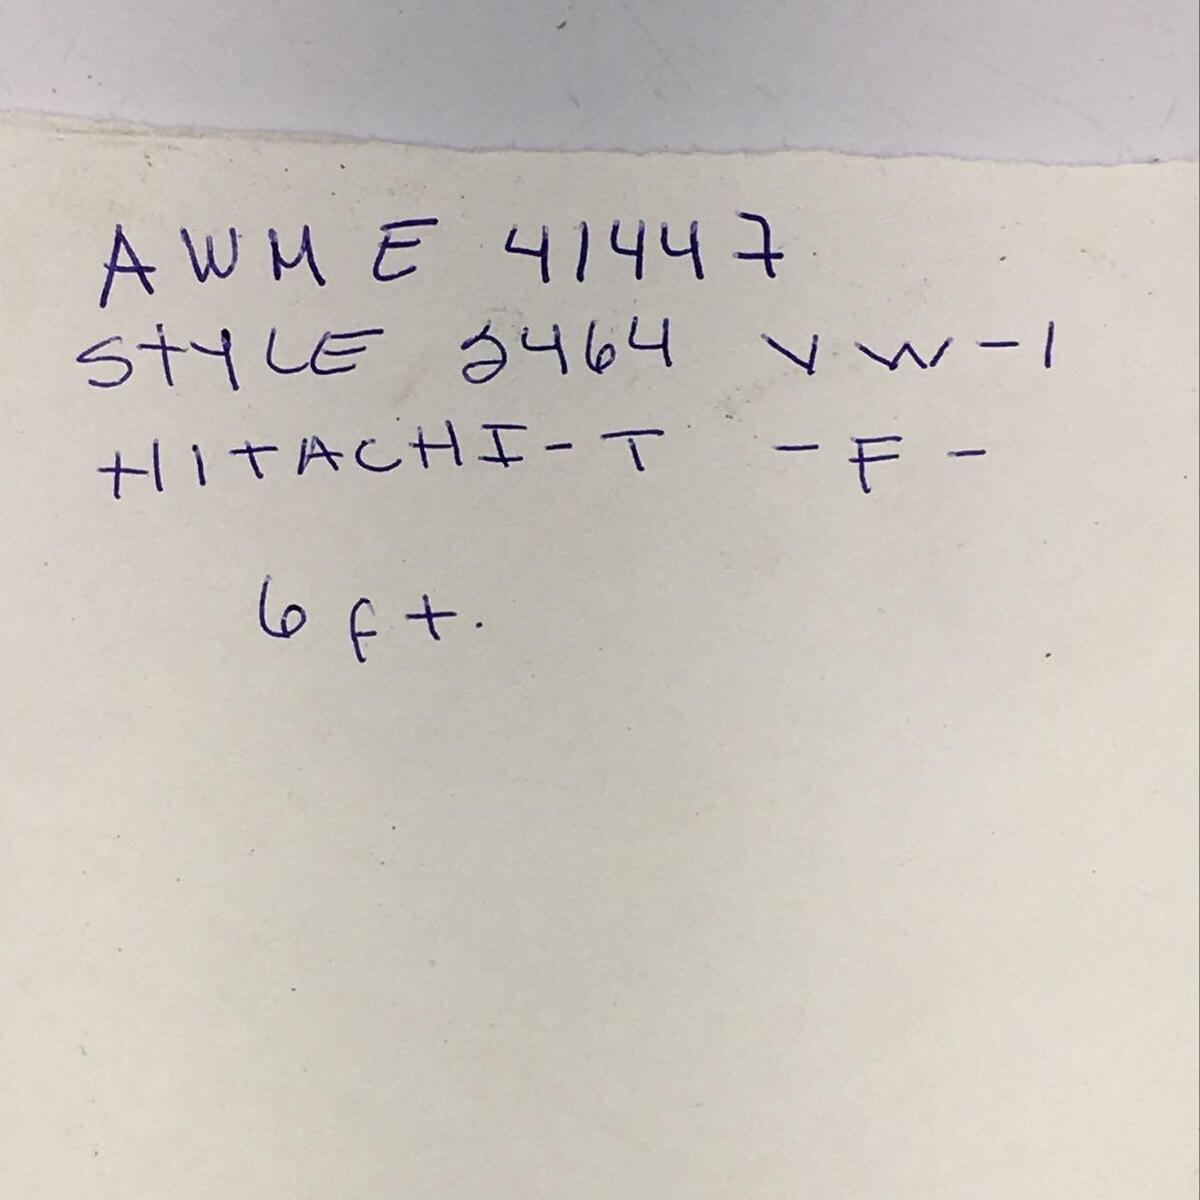 AWM E 41447
STYLE 2464 VW-1
HITACHI-T -F-
6 ft.